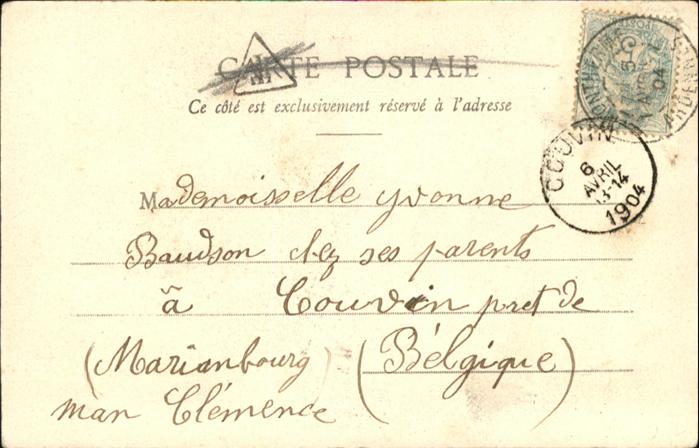 CARTE POSTALE
Ce côté est exclusivement réservé à l'adresse
COUVIN
6
AVRIL
13-14
1904
Mademoiselle Yvonne
Baudson chez ses parents
à Couvin pret de
(Marianbourg) (Bélgique)
man Clémence